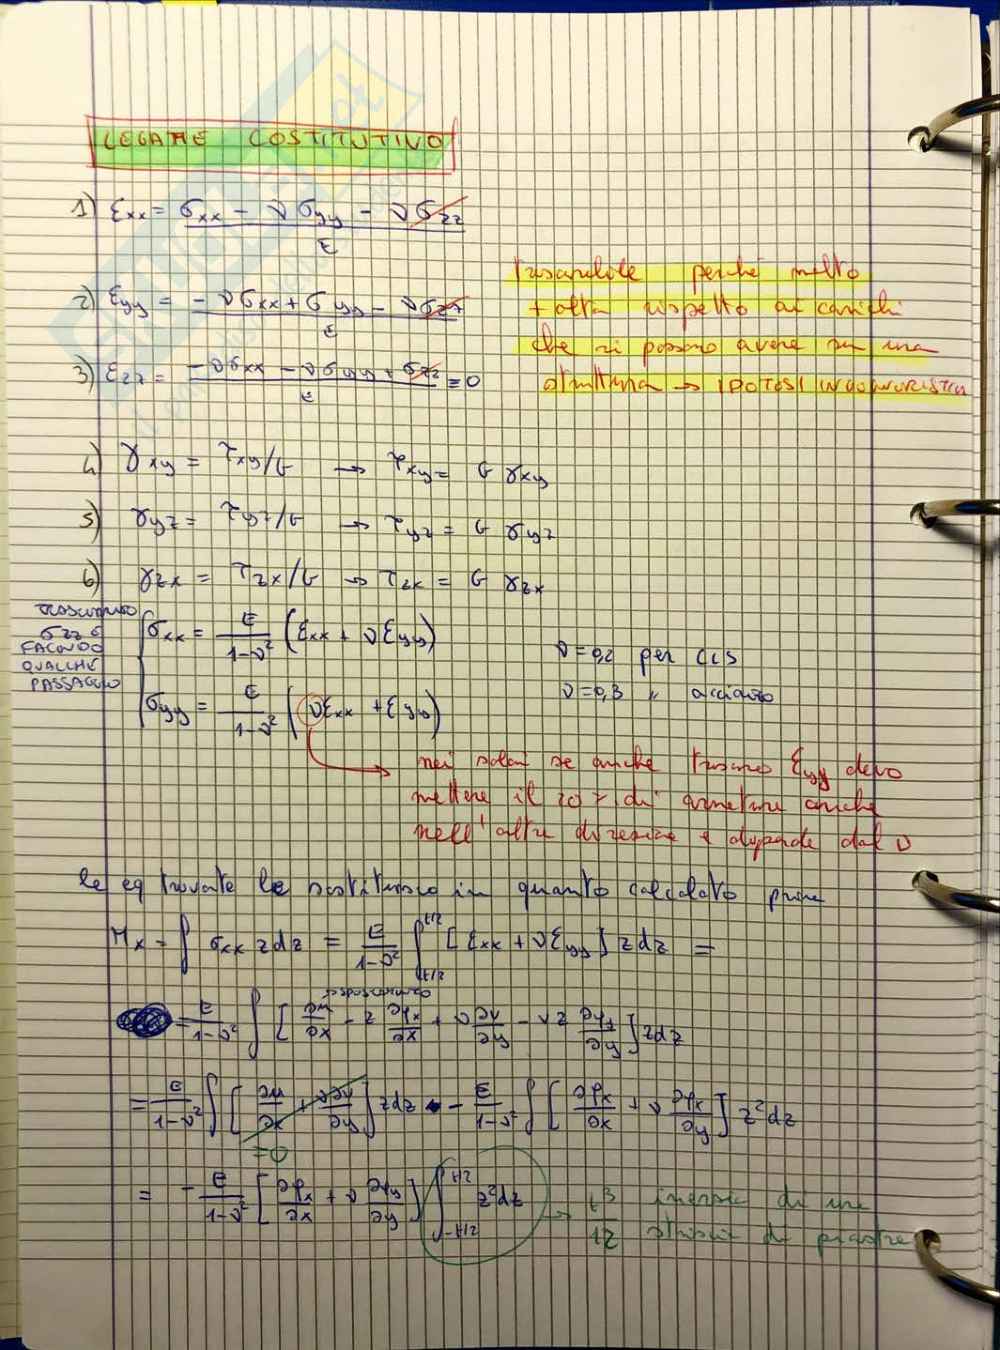 LEGAME COSTITUTIVO
1) εxx = σxx - νσyy - νσzz / E
2) εyy = -νσxx + σyy - νσzz / E
3) εzz = -νσxx - νσyy + σzz / E = 0
trascurabile perché molto
+ alta rispetto ai carichi
che si possono avere su una
struttura → IPOTESI
4) γxy = τxy/G → τxy = G γxy
5) γyz = τyz/G → τyz = G γyz
6) γzx = τzx/G → τzx = G γzx
TRASCURANDO
σzz E
FACENDO
QUALCHE
PASSAGGIO
σxx = E / 1-ν² (εxx + νεyy)
σyy = E / 1-ν² (νεxx + εyy)
ν = 0,2 per CLS
ν = 0,3 " acciaio
nei solai se anche trascuro εyy devo
mettere il 20 % di armature anche
nell'altra direzione e dipende dal ν
le eq trovate le sostituisco in quanto calcolato prima
Mx = ∫ σxx z dz = E / 1-ν² ∫ t/2 t/2 [εxx + νεyy] z dz =
= E / 1-ν² ∫ [∂u/∂x - z ∂φx/∂x + ν ∂v/∂y - νz ∂φy/∂y] z dz
= E / 1-ν² ∫ [∂u/∂x + ν∂v/∂y] z dz - E / 1-ν² ∫ [∂φx/∂x + ν ∂φx/∂y] z² dz
= 0
= - E / 1-ν² [∂φx/∂x + ν ∂φy/∂y] ∫ t/2 -t/2 z² dz → t³ / 12 inerzia di una
striscia di piastra